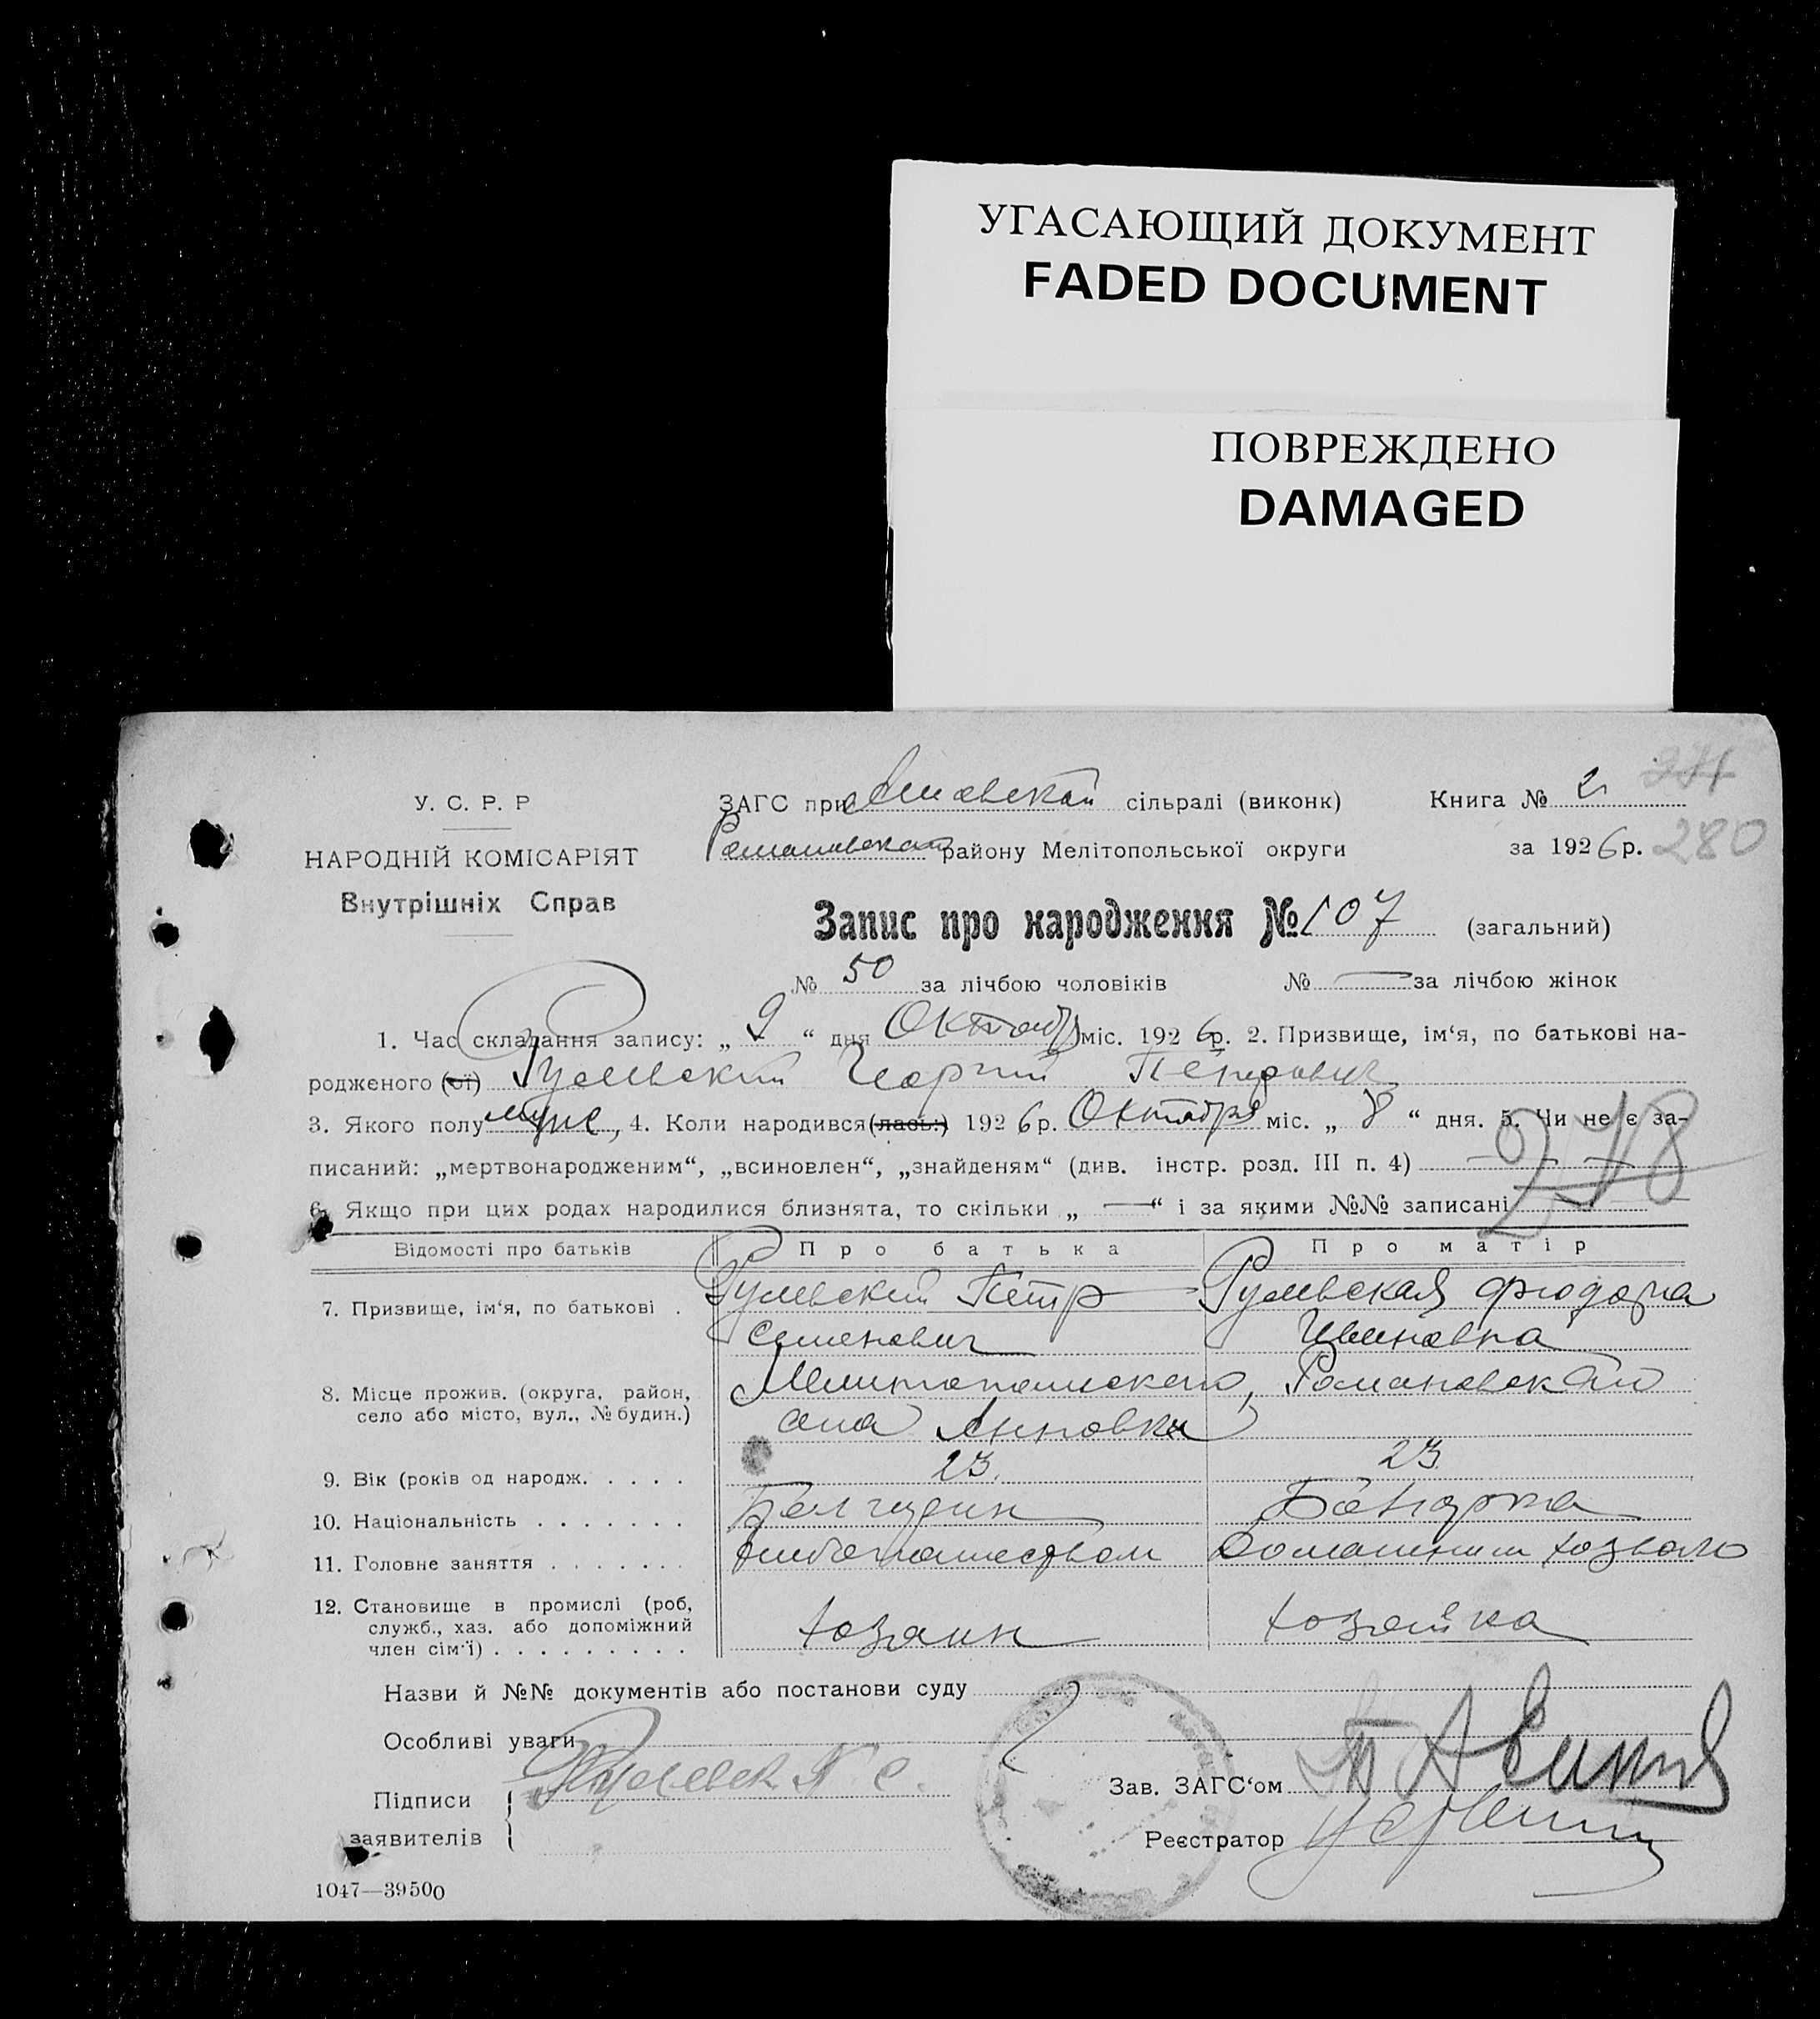 УГАСАЮЩИЙ ДОКУМЕНТ
FADED DOCUMENT
ПОВРЕЖДЕНО
DAMAGED
У. С. Р. Р
НАРОДНІЙ КОМІСАРІЯТ
Внутрішніх Справ
ЗАГС при сільраді (виконк)
Книга № 2
Романовской району Мелітопольської округи
за 1926 р. 280
Запис про народження № 107 (загальний)
№ 50 за лічбою чоловіків № — за лічбою жінок
1. Час складання запису: „ 9 “ дня Октября міс. 1926 р. 2. Призвище, ім‘я, по батькові на-
родженого (ої) Румевский Георгий Петрович
3. Якого полу муж, 4. Коли народився (лась:) 1926 р. Октября міс. „ 8 “ дня. 5. Чи не є за-
писаний: „мертвонародженим“, „всиновлен“, „знайденям“ (див. інстр. розд. III п. 4) — —
278
6. Якщо при цих родах народилися близнята, то скільки „ — “ і за якими №№ записані
Відомості про батьків
Про батька
Про матір
7. Призвище, ім‘я, по батькові .
Румевский Петр
Семенович
Румевская Фиодора
Ивановна
8. Місце прожив. (округа, район,
село або місто, вул., № будин.)
Мелитопольского, Романовского
села Анновка
9. Вік (років од народж. . . . .
23.
23
10. Національність . . . . . . .
Болгарин
Болгарка
11. Головне заняття . . . . . . .
хлебопашеством
Домашним хозвом
12. Становище в промислі (роб,
служб., хаз. або допоміжний
член сім‘ї) . . . . . . . . .
хозяин
хозяйка
Назви й №№ документів або постанови суду
Особливі уваги
Підписи
заявителів
Зав. ЗАГС‘ом
Реєстратор
1047—39500